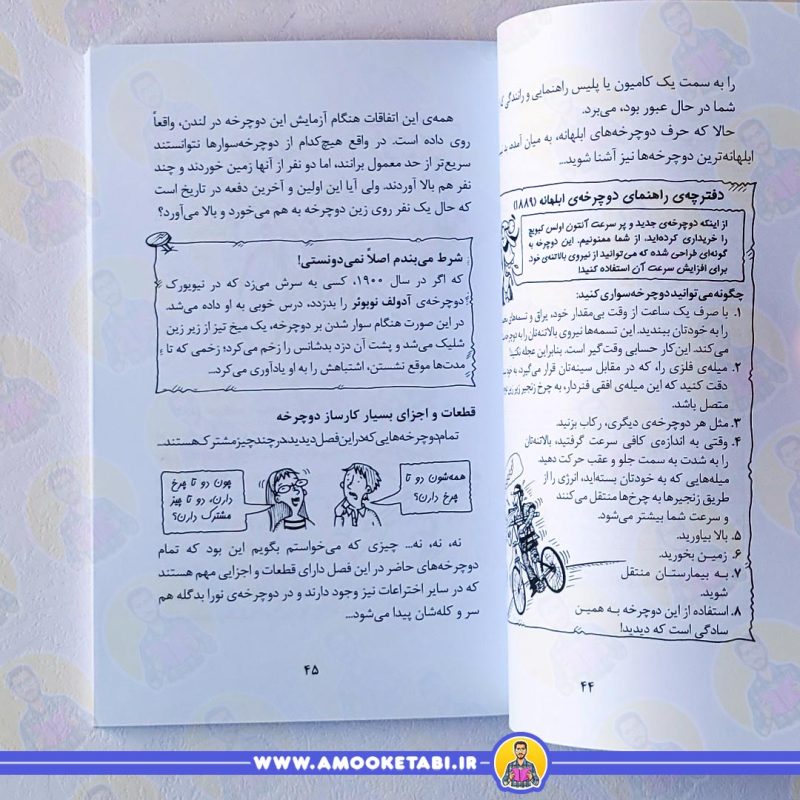 را به سمت یک کامیون یا پلیس راهنمایی و رانندگی که
شما در حال عبور بود، می‌برد.
حالا که حرف دوچرخه‌های ابلهانه، به میان آمده
ابلهانه‌ترین دوچرخه‌ها نیز آشنا شوید...
دفترچه‌ی راهنمای دوچرخه‌ی ابلهانه (۱۸۸۹)
از اینکه دوچرخه‌ی جدید و پر سرعت آنتون اولس کیویچ
را خریداری کرده‌اید، از شما ممنونیم. این دوچرخه به
گونه‌ای طراحی شده که می‌توانید از نیروی بالاتنه‌ی خود
برای افزایش سرعت آن استفاده کنید!
چگونه می‌توانید دوچرخه‌سواری کنید:
۱. با صرف یک ساعت از وقت بی‌مقدار خود، یراق و تسمه‌های
را به خودتان ببندید. این تسمه‌ها نیروی بالاتنه‌تان را به
می‌کند. این کار حسابی وقت‌گیر است. بنابراین عجله نکنید!
۲. میله‌ی فلزی را، که در مقابل سینه‌تان قرار می‌گیرد، به
دقت کنید که این میله‌ی افقی فنردار، به چرخ زنجیر زیر
متصل باشد.
۳. مثل هر دوچرخه‌ی دیگری، رکاب بزنید.
۴. وقتی به اندازه‌ی کافی سرعت گرفتید، بالاتنه‌تان
را به شدت به سمت جلو و عقب حرکت دهید
میله‌هایی که به خودتان بسته‌اید، انرژی را از
طریق زنجیرها به چرخ‌ها منتقل می‌کنند
و سرعت شما بیشتر می‌شود.
۵. بالا بیاورید.
۶. زمین بخورید.
۷. به بیمارستان منتقل
شوید.
۸. استفاده از این دوچرخه به همین
سادگی است که دیدید!
۴۴
همه‌ی این اتفاقات هنگام آزمایش این دوچرخه در لندن، واقعاً
روی داده است. در واقع هیچ‌کدام از دوچرخه‌سوارها نتوانستند
سریع‌تر از حد معمول برانند، اما دو نفر از آنها زمین خوردند و چند
نفر هم بالا آوردند. ولی آیا این اولین و آخرین دفعه در تاریخ است
که حال یک نفر روی زین دوچرخه به هم می‌خورد و بالا می‌آورد؟
شرط می‌بندم اصلاً نمی‌دونستی!
که اگر در سال ۱۹۰۰، کسی به سرش می‌زد که در نیویورک
دوچرخه‌ی آدولف نوبوئر را بدزدد، درس خوبی به او داده می‌شد.
در این صورت هنگام سوار شدن بر دوچرخه، یک میخ تیز از زیر زین
شلیک می‌شد و پشت آن دزد بدشانس را زخم می‌کرد؛ زخمی که تا
مدت‌ها موقع نشستن، اشتباهش را به او یادآوری می‌کرد...
قطعات و اجزای بسیار کارساز دوچرخه
تمام دوچرخه‌هایی که در این فصل دیدید در چند چیز مشترک هستند...
همه‌شون دو تا
چرخ دارن؟
چون دو تا چرخ
دارن، دو تا چیز
مشترک دارن؟
نه، نه، نه... چیزی که می‌خواستم بگویم این بود که تمام
دوچرخه‌های حاضر در این فصل دارای قطعات و اجزایی مهم هستند
که در سایر اختراعات نیز وجود دارند و در دوچرخه‌ی نورا بدگله هم
سر و کله‌شان پیدا می‌شود...
۴۵
WWW.AMOOKETABI.IR